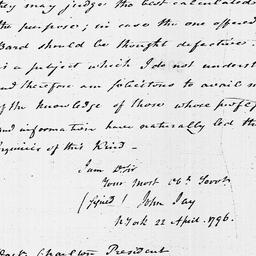 they may judge the best calculated
the purpose; in case the one offered
Board should be thought defective.
is a subject which I do not underst
and therefore am solicitous to avail m
of the knowledge of those whose profes
and information have naturally led th
inquiries of this Kind.—
I am D Sir
Your most Obt. Servt.
(signed) John Jay
N York 22 April. 1796.
Doctr Charlton President